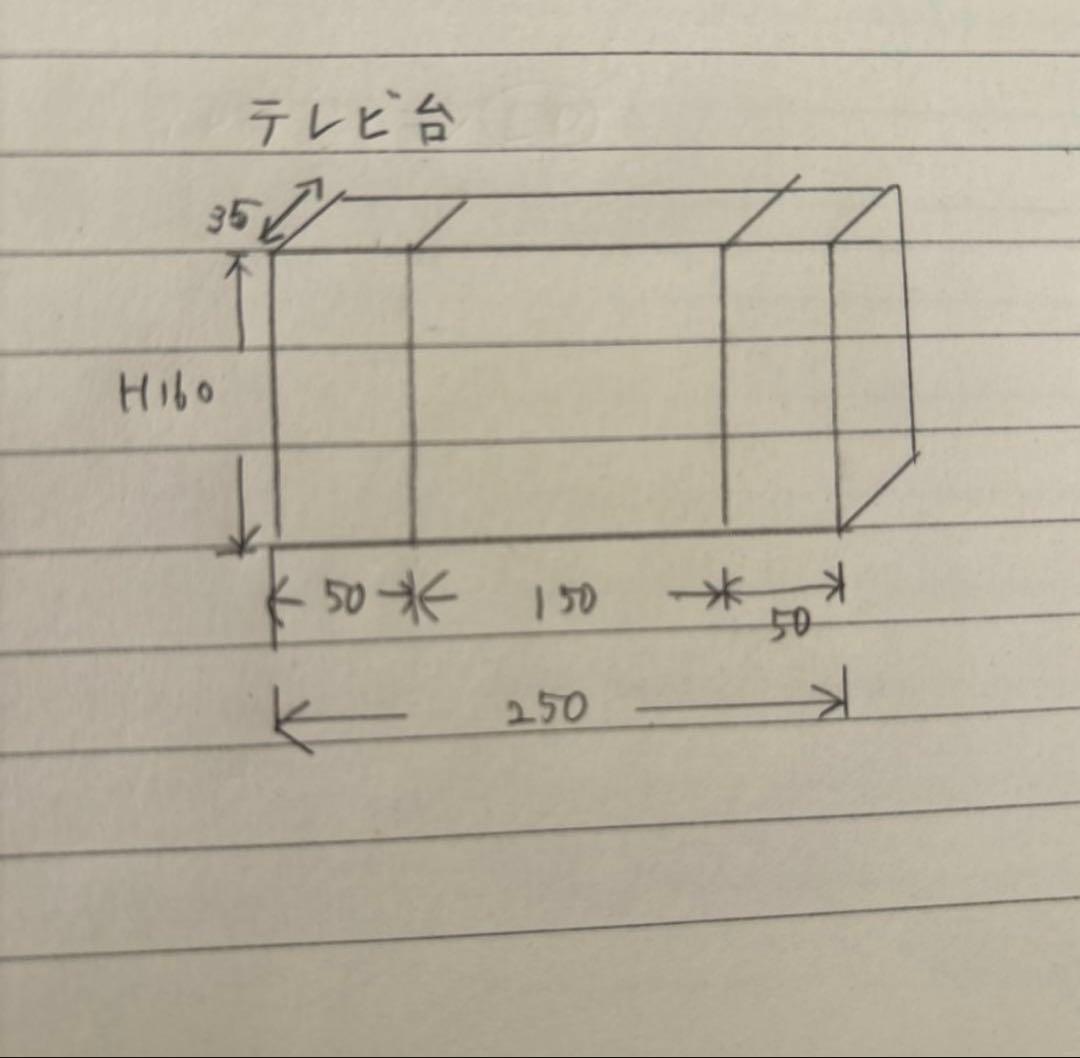 テレビ台
35
H160
50 150 50
250